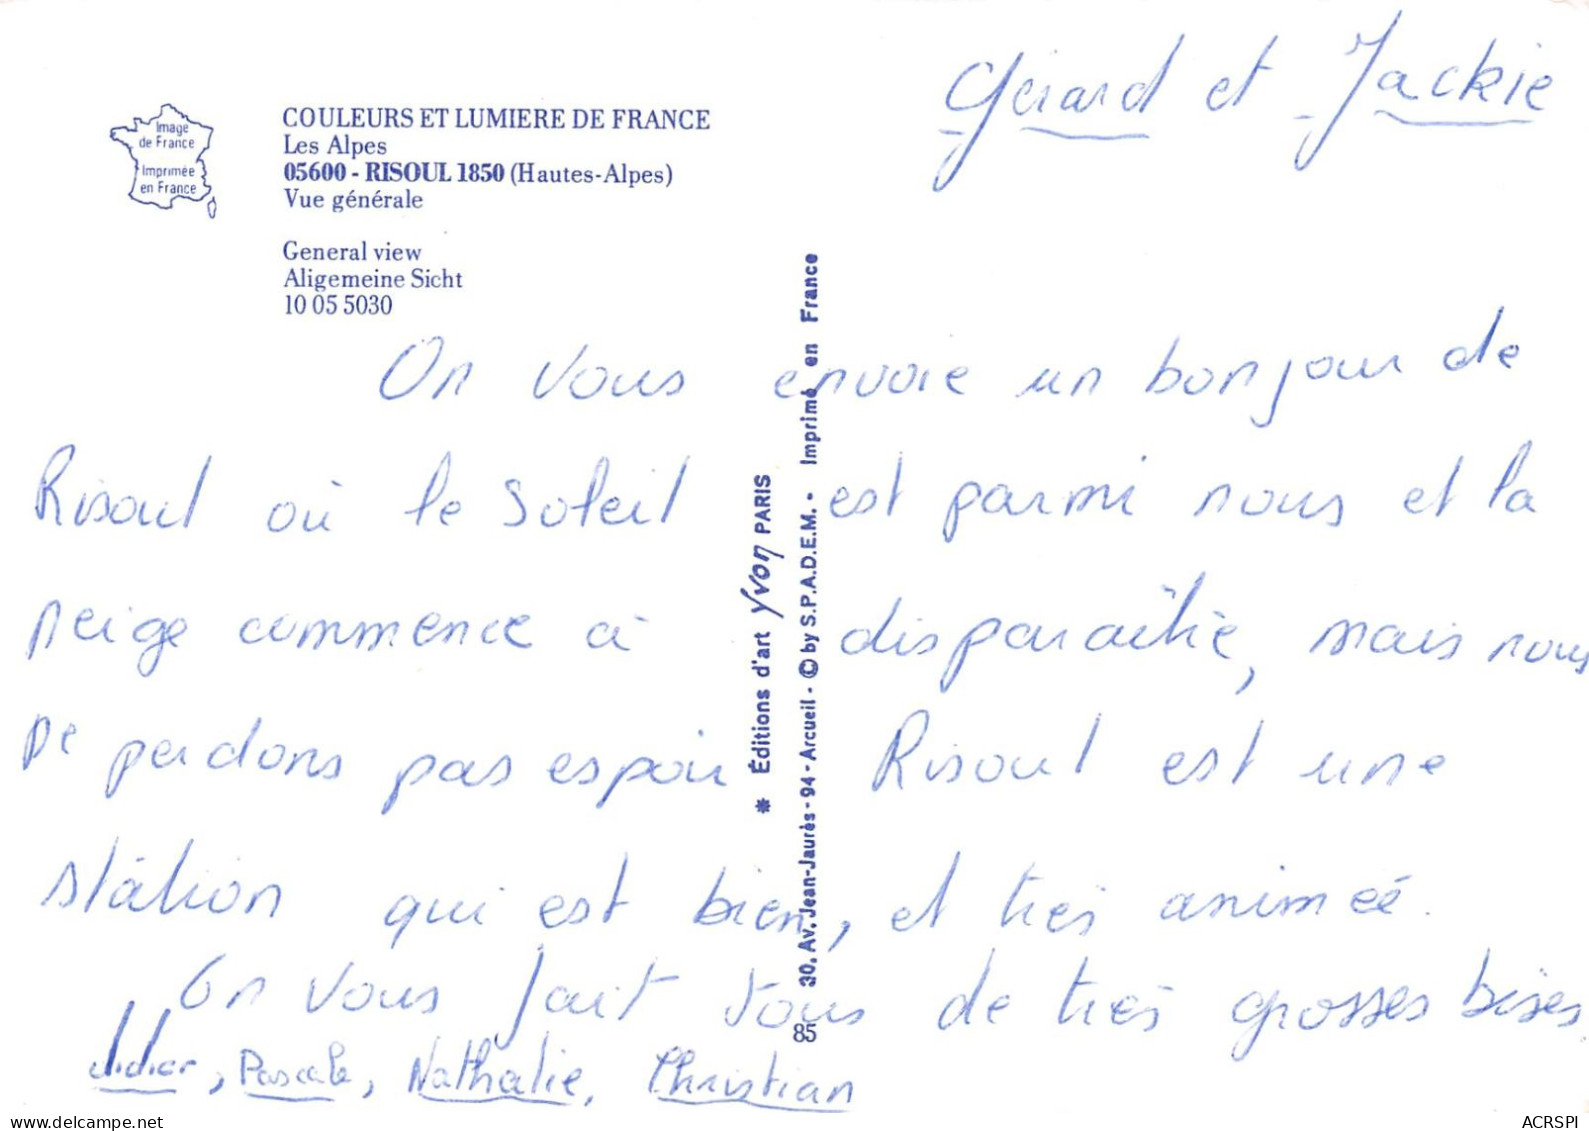 Gérard et Jackie
Image
de France
Imprimée
en France
COULEURS ET LUMIERE DE FRANCE
Les Alpes
05600 - RISOUL 1850 (Hautes-Alpes)
Vue générale
General view
Aligemeine Sicht
10 05 5030
On vous envoie un bonjour de
Risoul où le soleil est parmi nous et la
neige commence à disparaître, mais nous
ne perdons pas espoir Risoul est une
station qui est bien, et très animée.
On vous fait tous de très grosses bises
Didier, Pascale, Nathalie, Christian
* Éditions d'art Yvon PARIS
30, Av. Jean-Jaurès - 94 - Arcueil - © by S.P.A.D.E.M. • Imprimé en France
85
ACRSPI